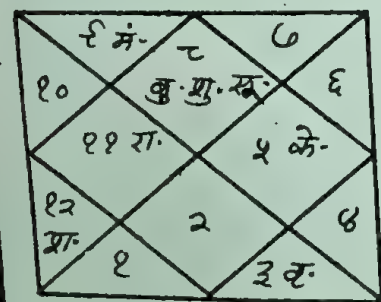 ९ मं.
८
७
१०
बु. शु. सू.
६
११ रा.
५ के.
१२
श.
२
४
१
३ बृ.